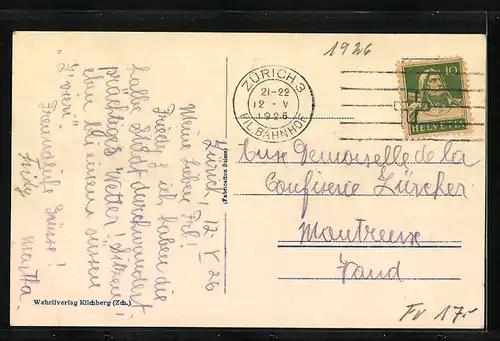 1926
ZÜRICH 3
21-22
12 • V
1926
FIL. BAHNHOF
10
HELVETIA
Zürich, 12. V. 26
Meine lieben Frl.!
Friedy & ich haben die
halbe Stadt durchwandert
prächtiges Wetter! Sitzen
eben bei einem süssen
"Z'vieri"
Freundliche Grüsse!
Martha.
(Fabrication Suisse)
Wehrliverlag Kilchberg (Zch.)
Aux Demoiselles de la
Confiserie Zürcher
Montreux
Vaud
Fr 17.-